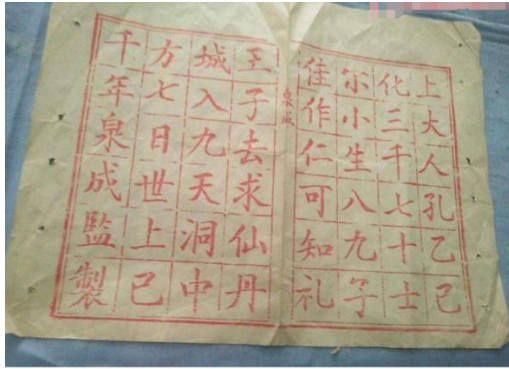 上大人孔乙己
化三千七十士
尔小生八九子
佳作仁可知礼
泉成
王子去求仙丹
城入九天洞中
方七日世上已
千年泉成監製